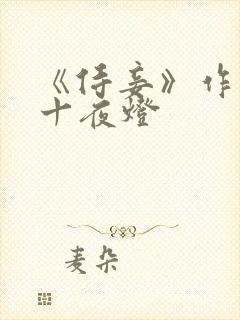 《侍妾》作
十夜燈
麦朵